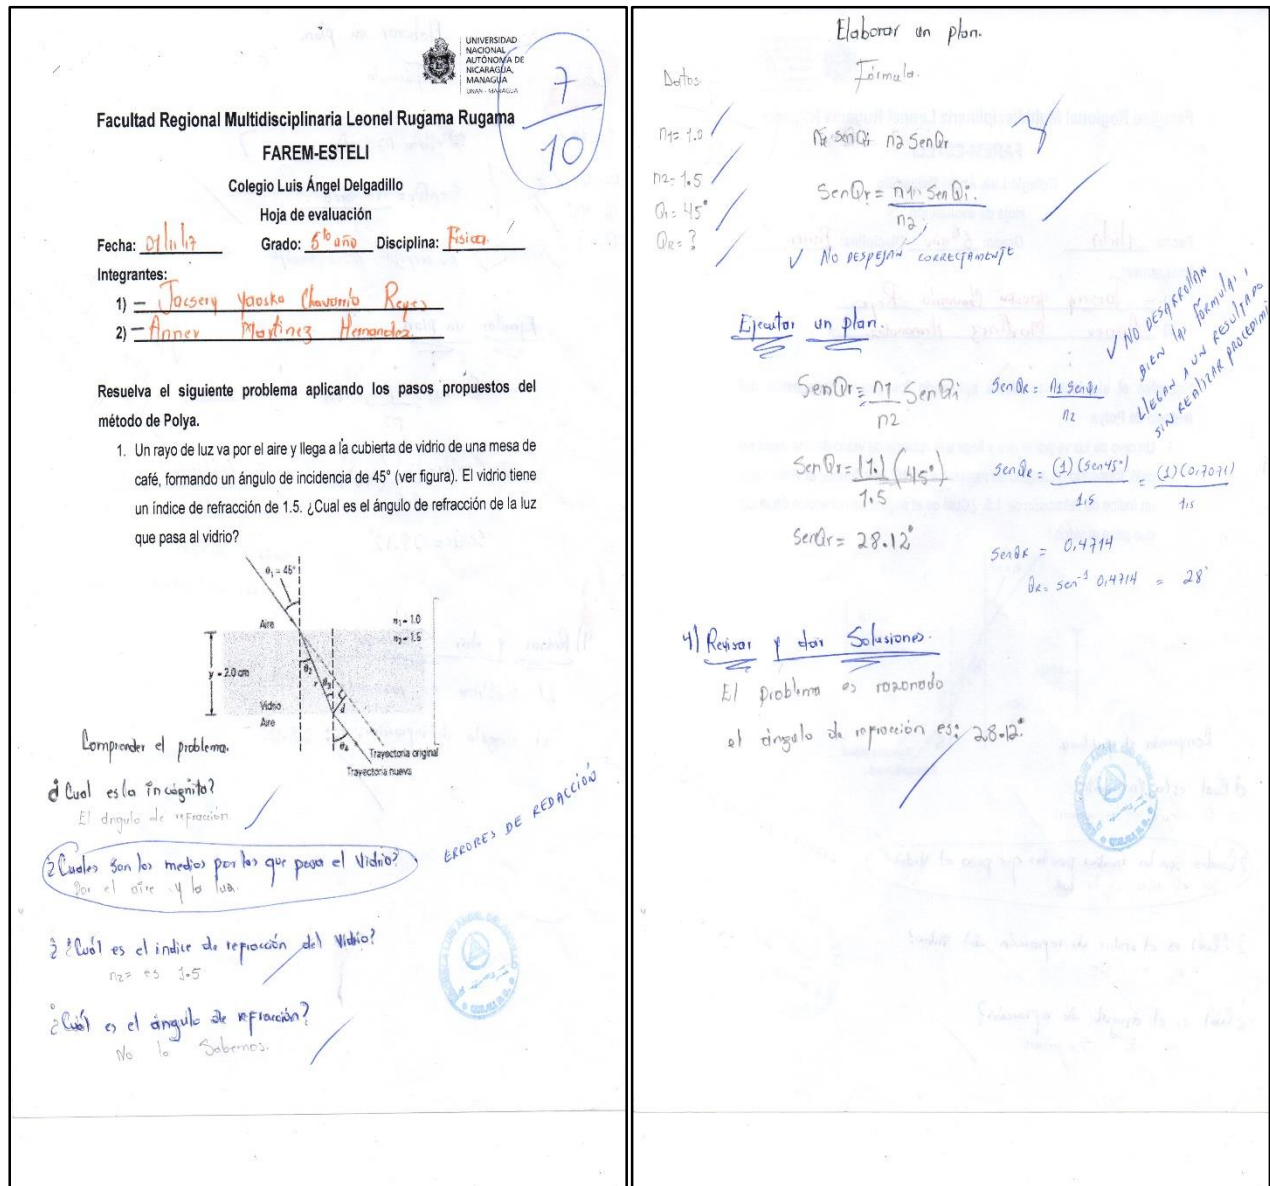 UNIVERSIDAD
NACIONAL
AUTÓNOMA DE
NICARAGUA,
MANAGUA
UNAN - MANAGUA
7
10
Facultad Regional Multidisciplinaria Leonel Rugama Rugama
FAREM-ESTELI
Colegio Luis Ángel Delgadillo
Hoja de evaluación
Fecha: 07/11/17 Grado: 5to año Disciplina: Física
Integrantes:
1) Jocsery Yaoska Chavarria Reyes
2) Anner Martinez Hernandez
Resuelva el siguiente problema aplicando los pasos propuestos del
método de Polya.
1. Un rayo de luz va por el aire y llega a la cubierta de vidrio de una mesa de
café, formando un ángulo de incidencia de 45° (ver figura). El vidrio tiene
un índice de refracción de 1.5. ¿Cual es el ángulo de refracción de la luz
que pasa al vidrio?
θ₁ = 45°
Aire
n₁ = 1.0
n₂ = 1.5
y = 2.0 cm
θ₂
r
θ₃
d
Vidrio
Aire
θ₄
Trayectoria original
Trayectoria nueva
Comprender el problema.
¿Cual es la incognito?
El angulo de refracción
¿Cuales son los medios por los que pasa el Vidrio?
Por el aire y la luz.
ERRORES DE REDACCIÓN
¿Cuál es el indice de refracción del Vidrio?
n2= es 1.5
¿Cuál es el ángulo de refracción?
No lo Sabemos.
Elaborar un plan.
Datos Fórmula.
n1= 1.0
n2= 1.5
Qi= 45°
QR= ?
n2 SenQr
SenQr = n1 . SenQi.
n2
√ NO DESPEJAN CORRECTAMENTE
Ejecutar un plan.
√ NO DESARROLLAN
BIEN LA FÓRMULA,
LLEGAN A UN RESULTADO
SIN REALIZAR PROCEDIMI
SenQr = n1 SenQi
n2
SenQR = n1 senQi
n2
SenQr = (1.) (45°)
1.5
senQR = (1) (sen45°) = (1) (0,7071)
1,5 1,5
SenQr = 28.12°
senQR = 0,4714
QR = sen⁻¹ 0,4714 = 28°
4) Revisar y dar Solusiones.
El problema es razonado
el ángulo de refracción es: 28.12°.